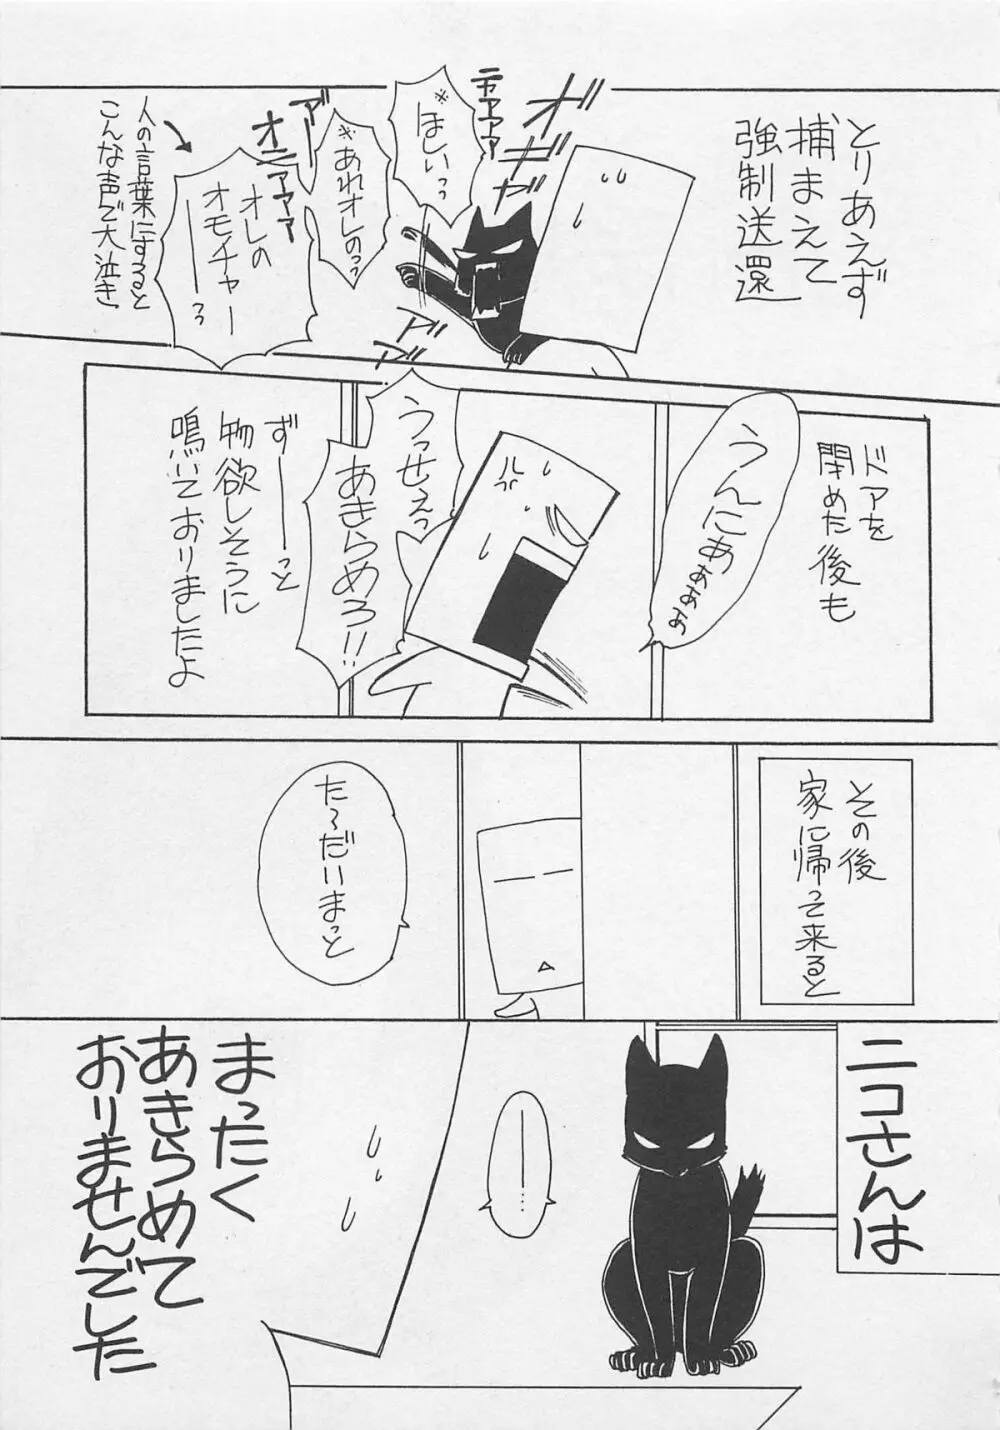 とりあえず
捕まえて
強制送還
ニャアアア
ほしいっっ
あれオレのっっ
アー
オニアアア
オレの
オモチャー
――っ
人の言葉にすると
こんな声で大泣き
ドアを
閉めた後も
うんにあぁぁぉぉ
うっせぇっ
あきらめろ!!
ずーーっと
物欲しそうに
鳴いておりましたよ
その後
家に帰って来ると
た〜だいまっと
ニコさんは
………
まったく
あきらめて
おりませんでした